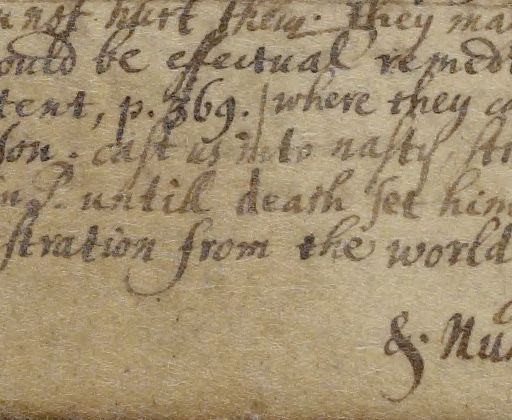 not hurt them. They ma
ould be effectual remed
tent, p. 369. where they c
son. cast us into nasty, st
until death set him
stration from the world
&. Nu